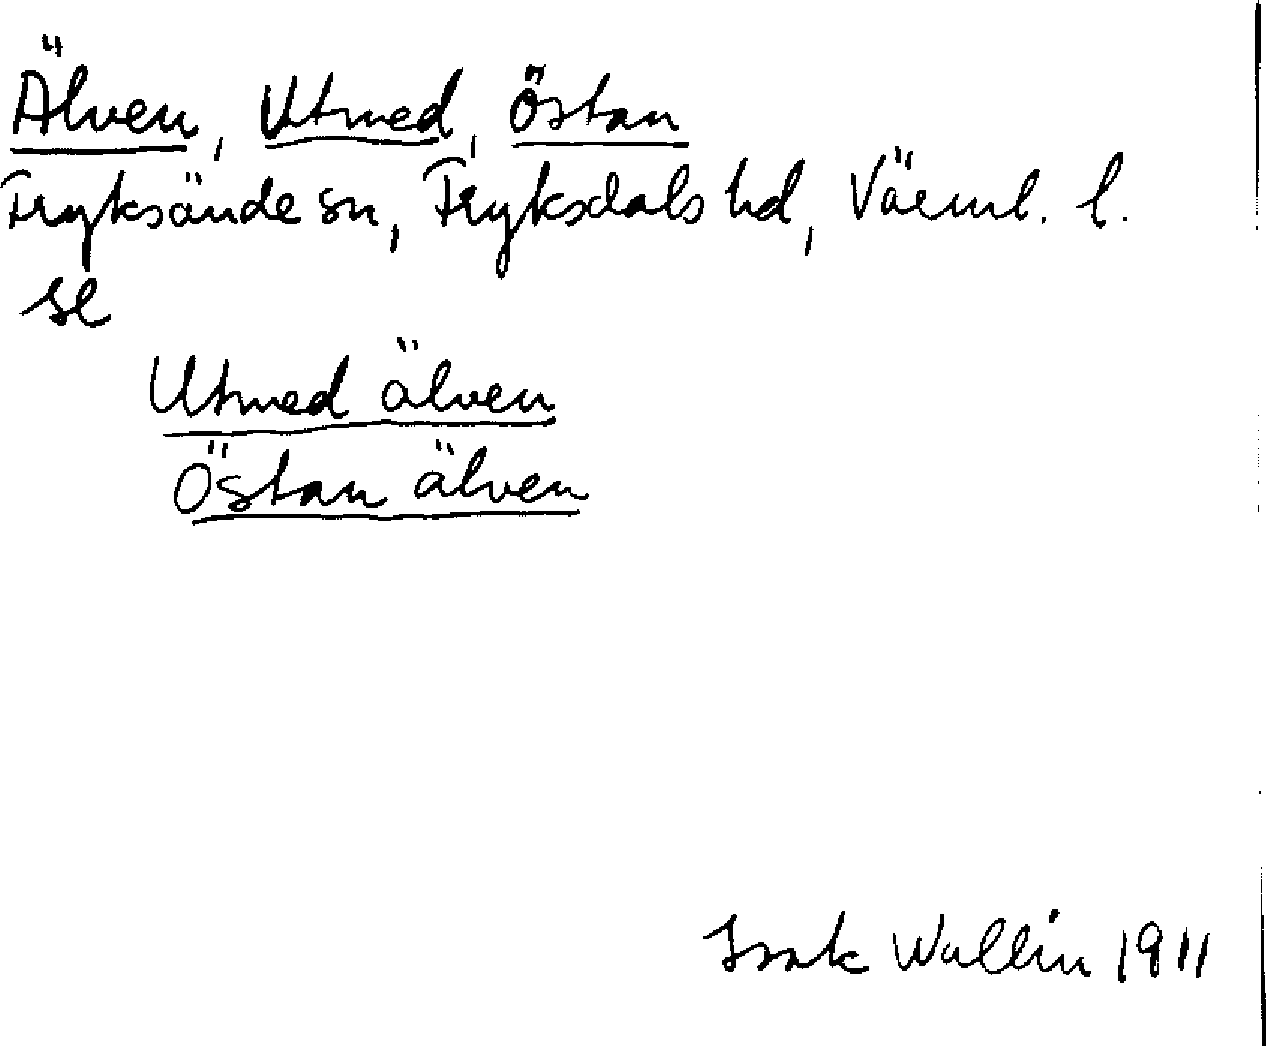 Älven, Utmed, Östan
Fryksände sn, Fryksdals hd, Värml. l.
se
Utmed älven
Östan älven
Isak Wallin 1911